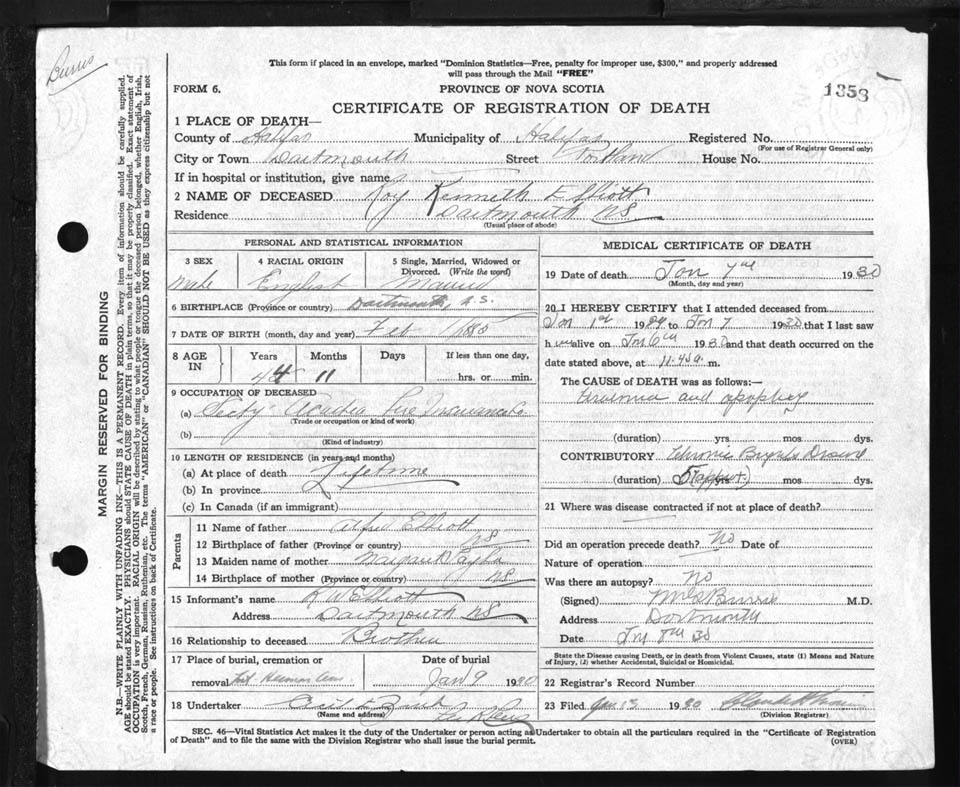 Burris
This form if placed in an envelope, marked "Dominion Statistics—Free, penalty for improper use, $300," and properly addressed
will pass through the Mail "FREE"
FORM 6.
PROVINCE OF NOVA SCOTIA
1353
CERTIFICATE OF REGISTRATION OF DEATH
MARGIN RESERVED FOR BINDING
N.B.—WRITE PLAINLY WITH UNFADING INK—THIS IS A PERMANENT RECORD. Every item of information should be carefully supplied.
AGE should be stated EXACTLY. PHYSICIANS should STATE CAUSE OF DEATH in plain terms, so that it may be properly classified. Exact statement of
OCCUPATION is very important. RACIAL ORIGIN will be described by stating to what people or tongue the deceased person belonged, whether English, Irish,
Scotch, French, German, Russian, Ruthenian, etc. The terms "AMERICAN" or "CANADIAN" SHOULD NOT BE USED as they express citizenship but not
a race or people. See instructions on back of Certificate.
1 PLACE OF DEATH—
County of Halifax Municipality of Halifax Registered No.
(For use of Registrar General only)
City or Town Dartmouth Street Portland House No.
If in hospital or institution, give name
2 NAME OF DECEASED Roy Kenneth Elliott
Residence Dartmouth NS
(Usual place of abode)
PERSONAL AND STATISTICAL INFORMATION
3 SEX 4 RACIAL ORIGIN 5 Single, Married, Widowed or
Divorced. (Write the word)
Male English Married
6 BIRTHPLACE (Province or country) Dartmouth, N.S.
7 DATE OF BIRTH (month, day and year) Feb 1885
8 AGE IN Years Months Days If less than one day,
44 11 hrs. or min.
9 OCCUPATION OF DECEASED
(a) Secty Acadia Fire Insurance Co
(Trade or occupation or kind of work)
(b)
(Kind of industry)
10 LENGTH OF RESIDENCE (in years and months)
(a) At place of death Lifetime
(b) In province
(c) In Canada (if an immigrant)
Parents
11 Name of father Alfred Elliott
12 Birthplace of father (Province or country) NS
13 Maiden name of mother
14 Birthplace of mother (Province or country) NS
15 Informant's name R W Elliott
Address Dartmouth NS
16 Relationship to deceased Brother
17 Place of burial, cremation or Date of burial
removal Mt. Hermon Cem Jan 9 1930
18 Undertaker
(Name and address)
MEDICAL CERTIFICATE OF DEATH
19 Date of death Jan 7th 1930
(Month, day and year)
20 I HEREBY CERTIFY that I attended deceased from
Jan 1st 1929 to Jan 7 1930 that I last saw
h im alive on Jan 6th 1930 and that death occurred on
date stated above, at 11.45 a. m.
The CAUSE OF DEATH was as follows:—
Uraemia and apoplexy
(duration) yrs mos dys.
CONTRIBUTORY Chronic Brights Disease
(duration) 5 mos dys.
21 Where was disease contracted if not at place of death?
Did an operation precede death? No Date of
Nature of operation
Was there an autopsy? No
(Signed) Burris M.D.
Address Dartmouth
Date Jan 8th 30
State the Disease causing Death, or in death from Violent Causes, state (1) Means and Nature
of Injury, (2) whether Accidental, Suicidal or Homicidal.
22 Registrar's Record Number
23 Filed Jan 13 1930
(Division Registrar)
SEC. 46—Vital Statistics Act makes it the duty of the Undertaker or person acting as Undertaker to obtain all the particulars required in the "Certificate of Registration
of Death" and to file the same with the Division Registrar who shall issue the burial permit.
(OVER)